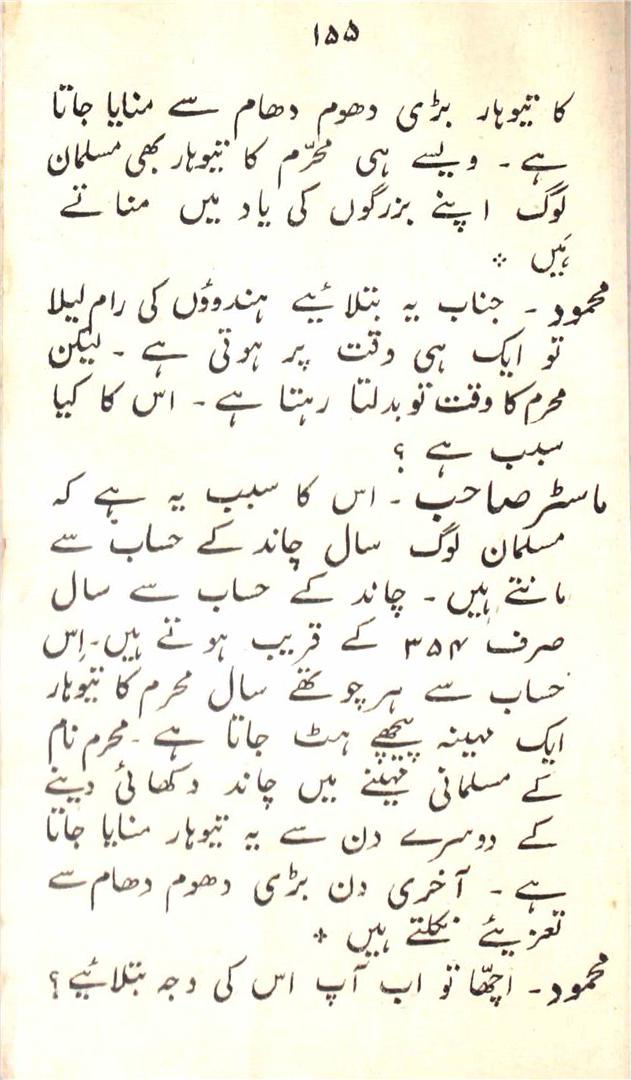 ۱۵۵
کا تیوہار بڑی دھوم دھام سے منایا جاتا
ہے ۔ ویسے ہی محرّم کا تیوہار بھی مسلمان
لوگ اپنے بزرگوں کی یاد میں مناتے
ہَیں ⁘
محمود ۔ جناب یہ بتلائیے ہندوؤں کی رام لیلا
تو ایک ہی وقت پر ہوتی ہے ۔ لیکن
محرم کا وقت تو بدلتا رہتا ہے ۔ اس کا کیا
سبب ہے ؟
ماسٹر صاحب ۔ اس کا سبب یہ ہے کہ
مسلمان لوگ سال چاند کے حساب سے
مانتے ہیں ۔ چاند کے حساب سے سال
صرف ۳۵۴ کے قریب ہوتے ہیں ۔ اِس
حساب سے ہر چوتھے سال محرم کا تیوہار
ایک مہینہ پیچھے ہٹ جاتا ہے ۔ محرم نام
کے مسلمانی مہینے میں چاند دکھائی دینے
کے دوسرے دن سے یہ تیوہار منایا جاتا
ہے ۔ آخری دن بڑی دھوم دھام سے
تعزیئے نکلتے ہیں ⁘
محمود ۔ اچھّا تو اب آپ اس کی وجہ بتلائیے ؟